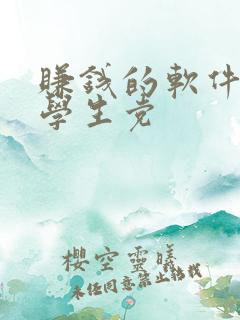 賺錢的軟件
學生党
櫻空靈曦
未经同意禁止转载